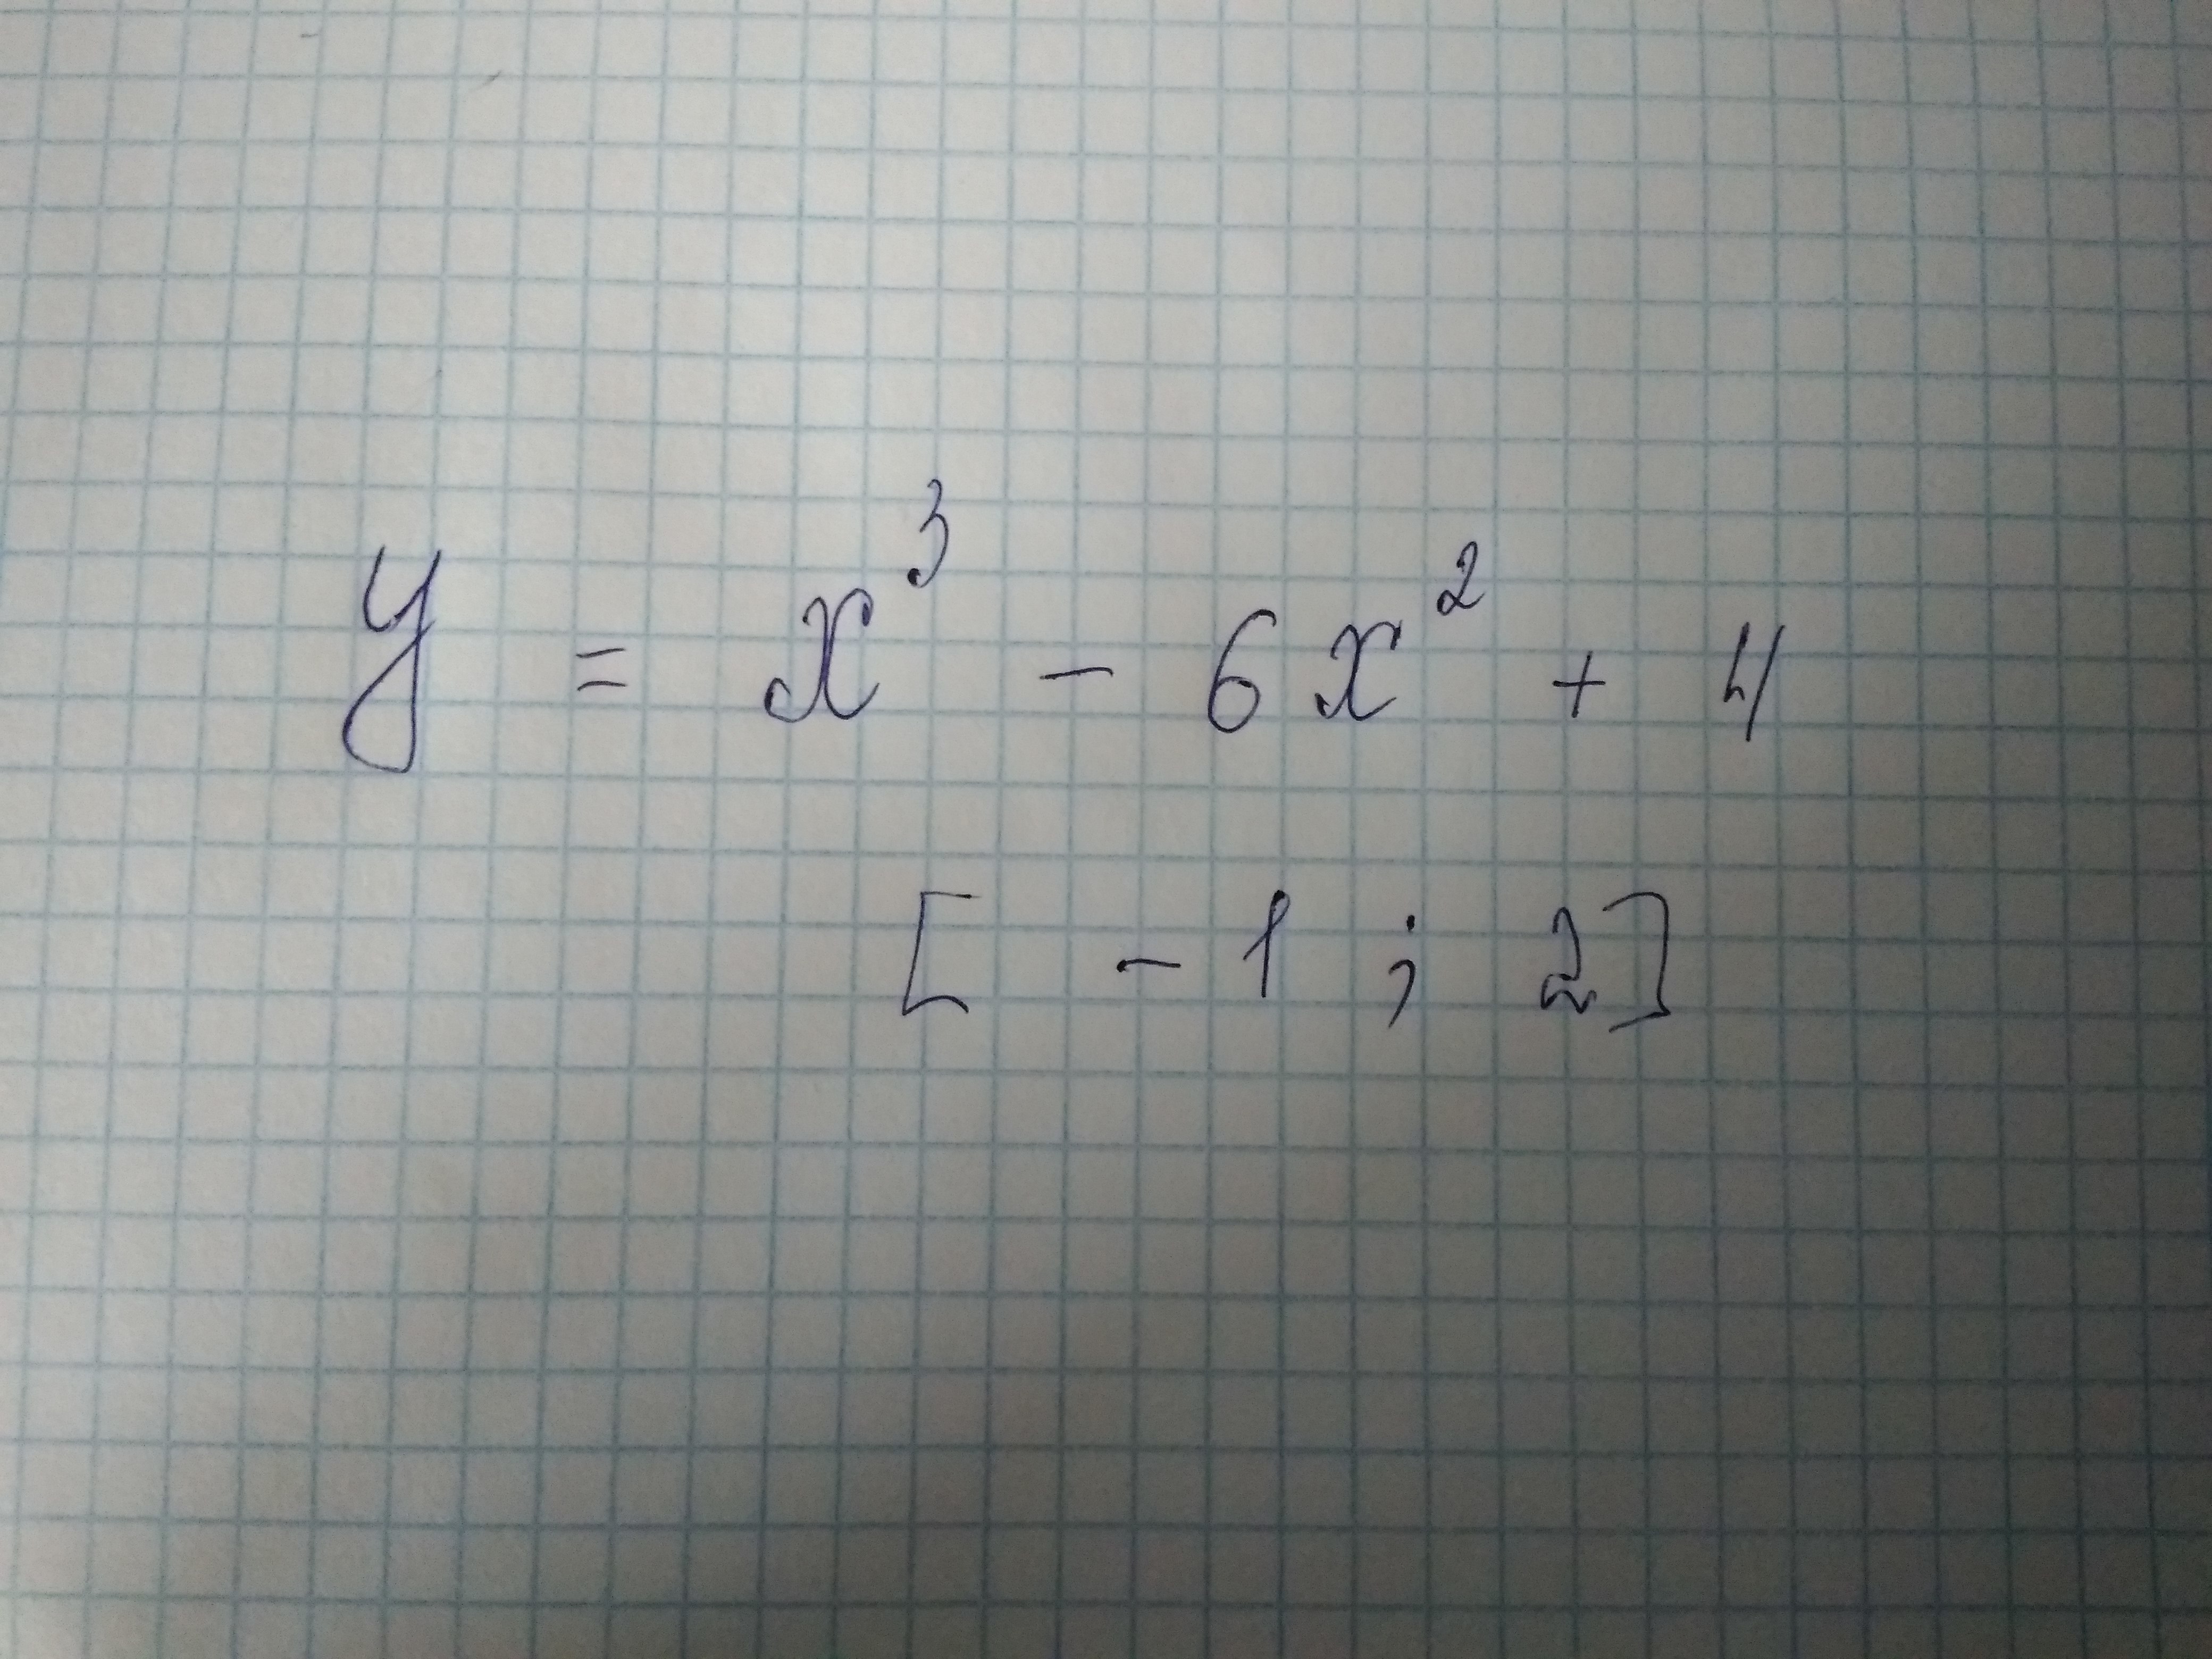 y = x³ - 6x² + 4
[ - 1 ; 2]